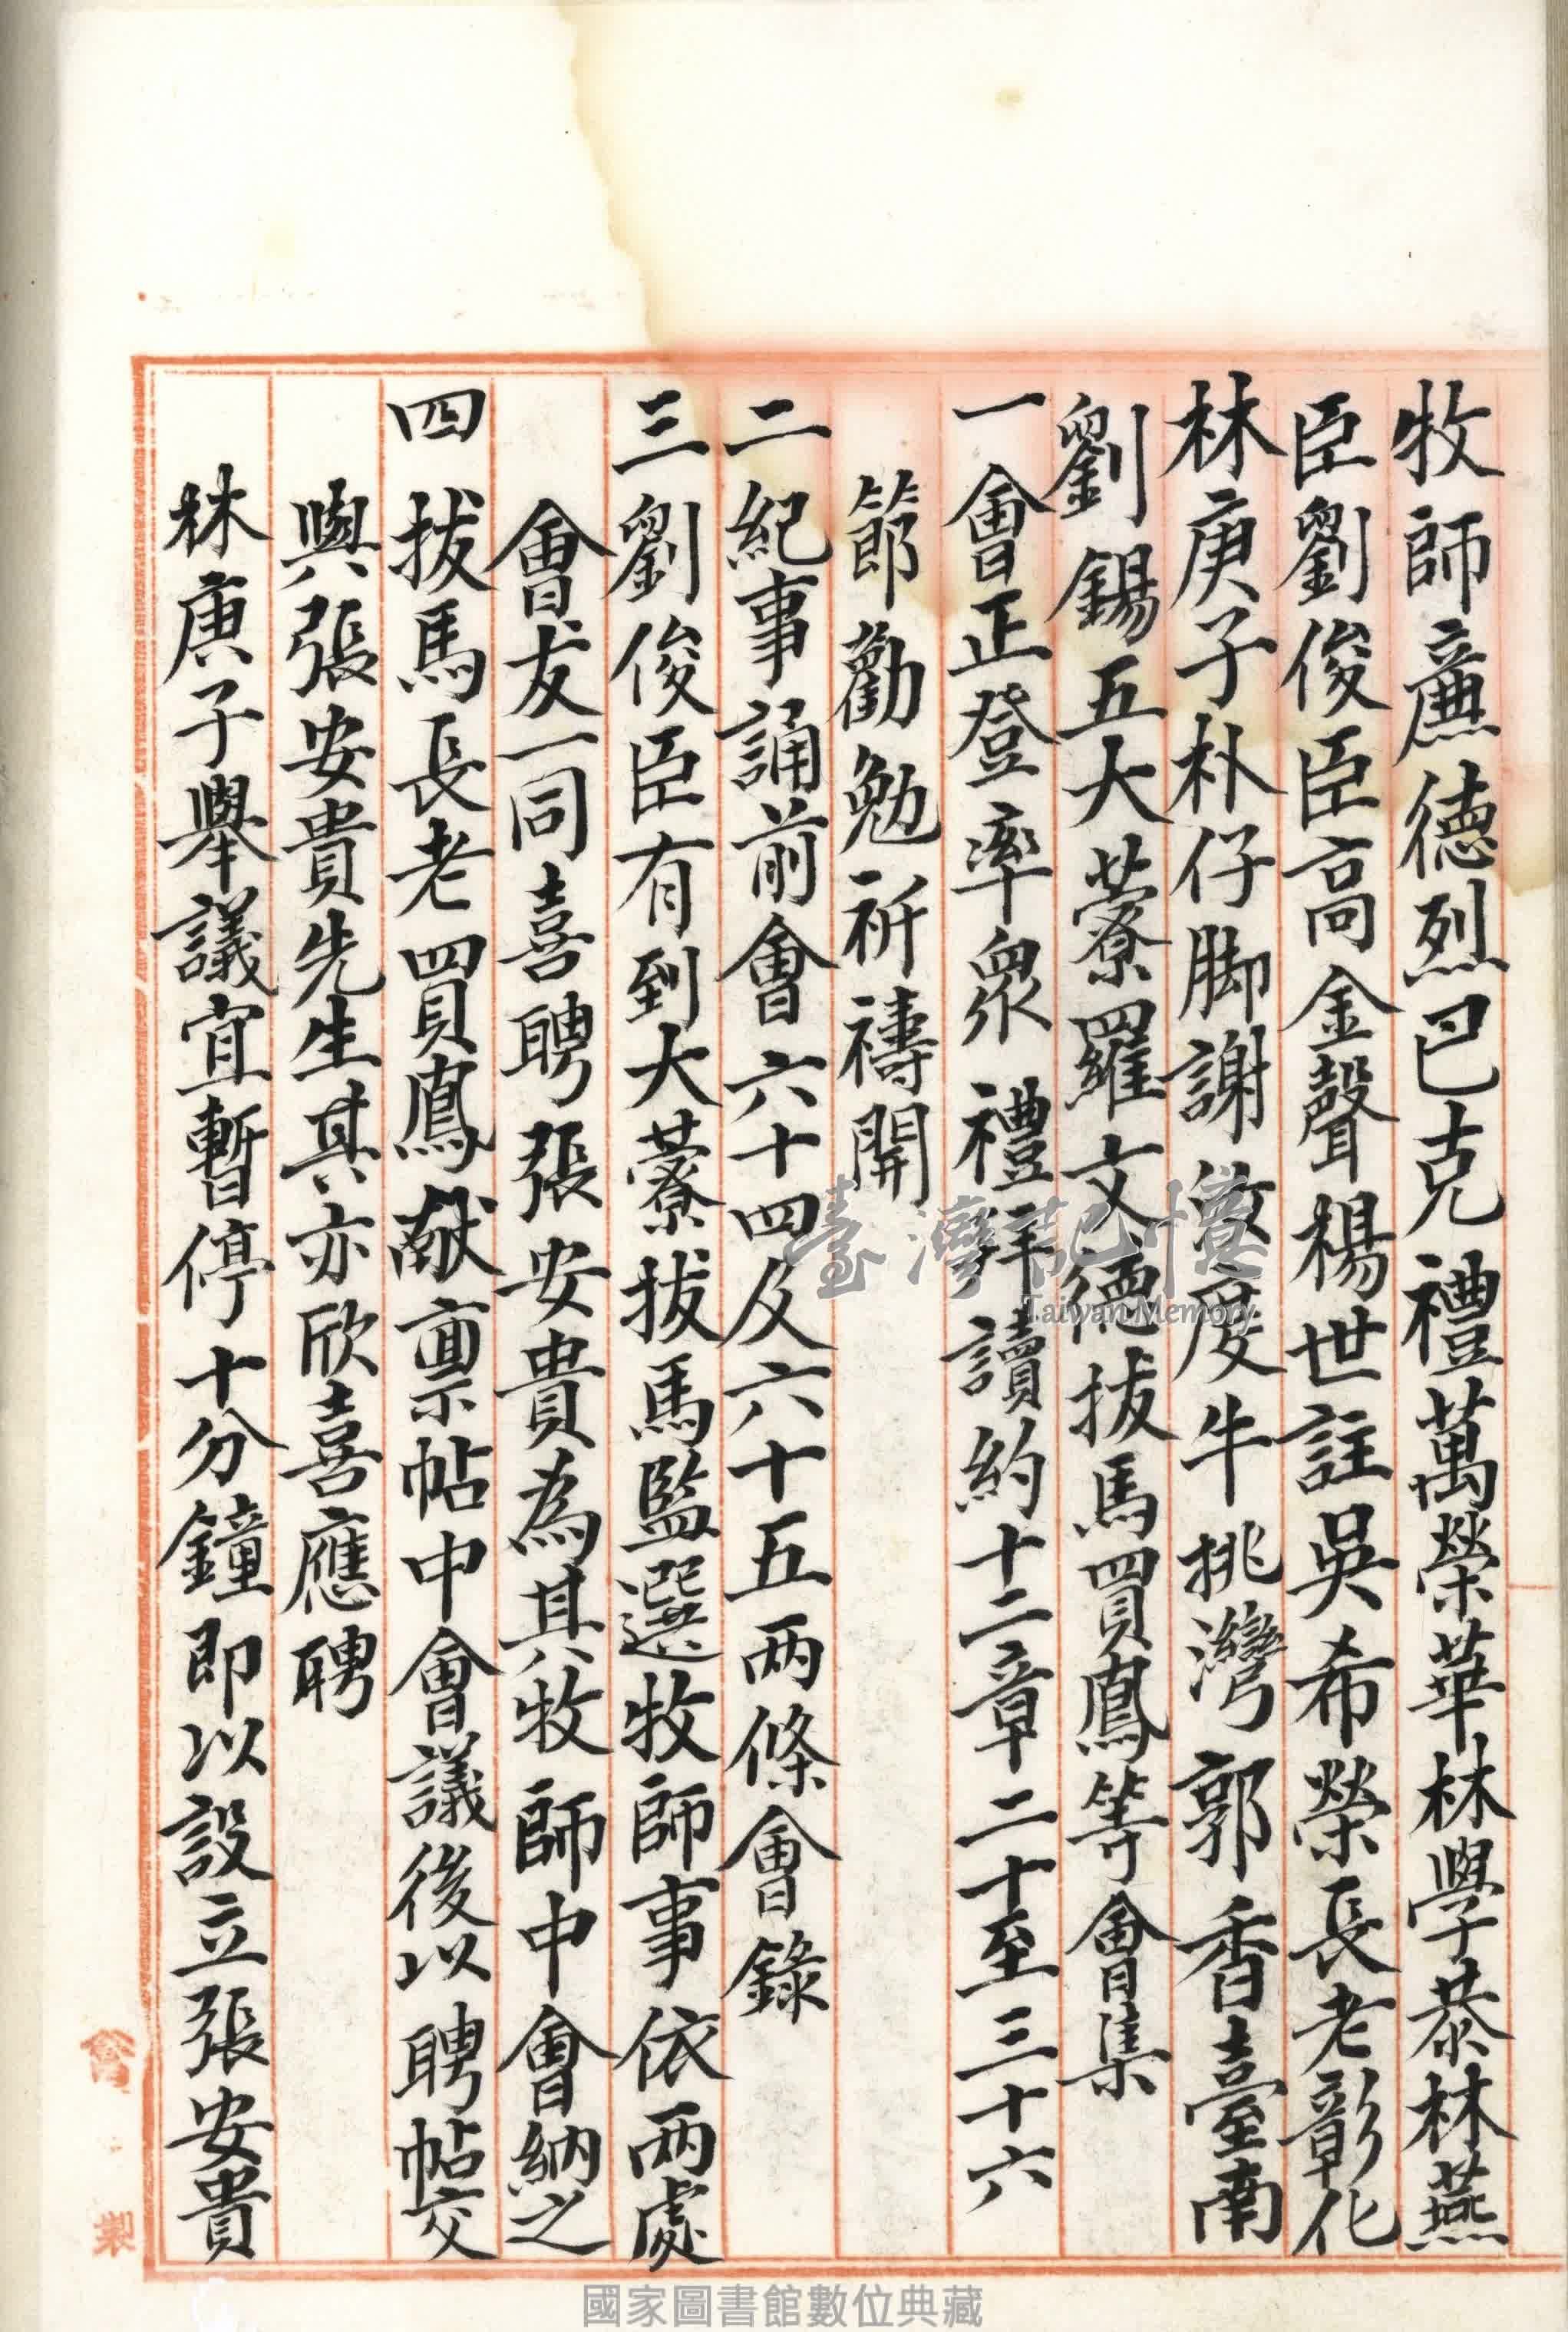 牧師廉德烈巴克禮萬榮華林學恭林燕
臣劉俊臣高金聲楊世註吳希榮長老彰化
林庚子朴仔脚謝 度牛挑灣郭香臺南
劉錫五大藔羅文德拔馬買鳳等會集
一會正登率衆禮拜讀約十二章二十至三十六
節勸勉祈禱開
二紀事誦前會六十四及六十五兩條會錄
三劉俊臣有到大藔拔馬監選牧師事依兩處
會友一同喜聘張安貴為其牧師中會納之
四拔馬長老買鳳献稟帖中會議後以聘帖交
與張安貴先生其亦欣喜應聘
林庚子舉議宜暫停十分鐘即以設立張安貴
製
臺灣記憶
Taiwan Memory
國家圖書館數位典藏